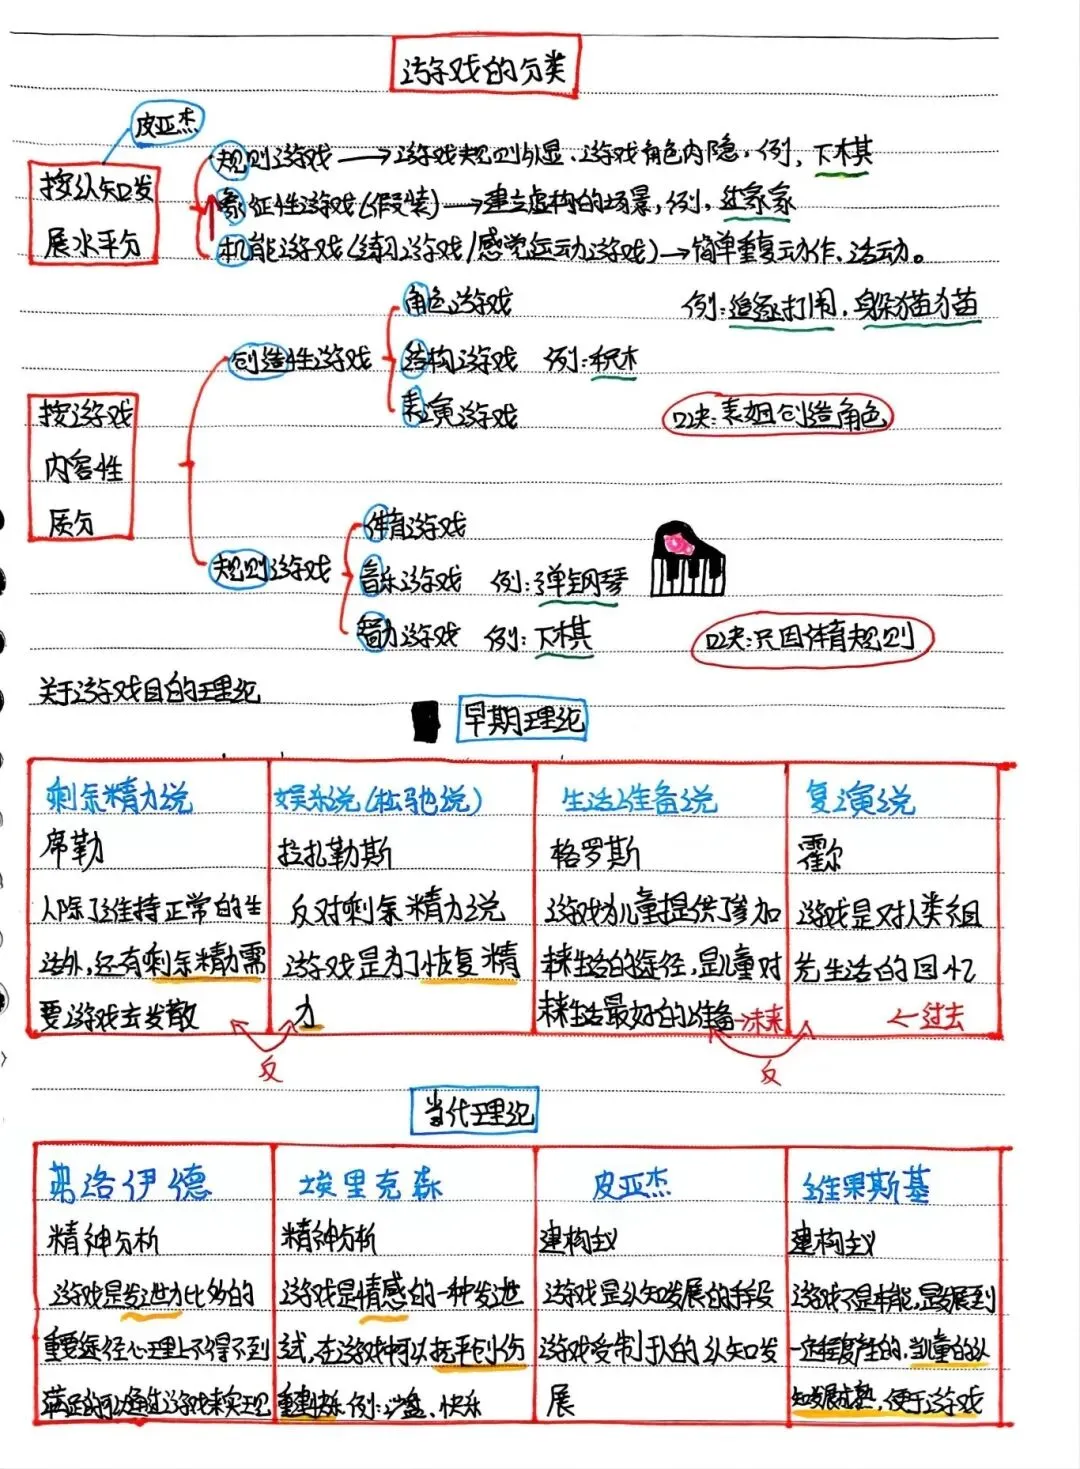 游戏的分类
皮亚杰
按认知发
展水平分
规则游戏 → 游戏规则外显、游戏角色内隐。例，下棋
象征性游戏(假装) → 建立虚构的场景，例，过家家
机能游戏(练习游戏/感觉运动游戏) → 简单重复动作、活动。
例：追逐打闹，躲猫猫
按游戏
内容性
质分
创造性游戏
角色游戏
结构游戏 例：积木
表演游戏
口诀：表姐创造角色
规则游戏
体育游戏
音乐游戏 例：弹钢琴
智力游戏 例：下棋
口诀：只因体育规则
关于游戏目的理论
早期理论
剩余精力说
席勒
人除了维持正常的生
活外，还有剩余精力需
要游戏去发散
娱乐说(松驰说)
拉扎勒斯
反对剩余精力说
游戏是为了恢复精
力
反
生活准备说
格罗斯
游戏为儿童提供了参加
未来生活的途径，是儿童对
未来生活最好的准备→未来
复演说
霍尔
游戏是对人类组
先生活的回忆
←过去
反
当代理论
弗洛伊德
精神分析
游戏是发泄力比多的
重要途径心理上不得不到
满足的可以通过游戏来实现
埃里克森
精神分析
游戏是情感的一种发泄
试，在游戏中可以抚平创伤
重建快乐 例：沙盘、快乐
皮亚杰
建构主义
游戏是认知发展的手段
游戏受制于人的认知发
展
维果斯基
建构主义
游戏不是本能，是发展到
一定程度产生的，当儿童的认
知发展成熟，便于游戏